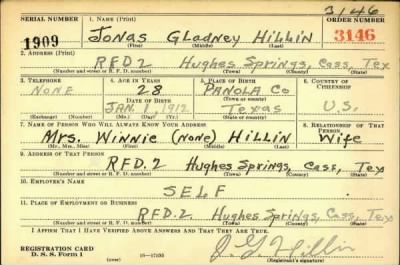 3146
SERIAL NUMBER 1. NAME (Print) ORDER NUMBER
1909 JONAS GLADNEY HILLIN 3146
(First) (Middle) (Last)
2. ADDRESS (Print)
RFD2 Hughes Springs, Cass, Tex
(Number and street or R. F. D. number) (Town) (County) (State)
3. TELEPHONE 4. AGE IN YEARS 5. PLACE OF BIRTH 6. COUNTRY OF CITIZENSHIP
NONE 28 PANOLA Co
DATE OF BIRTH (Town or county)
JAN. 1 1912 Texas U.S.
(Exchange) (Number) (Mo.) (Day) (Yr.) (State or country)
7. NAME OF PERSON WHO WILL ALWAYS KNOW YOUR ADDRESS 8. RELATIONSHIP OF THAT PERSON
Mrs. WINNIE (NONE) HILLIN Wife
(Mr., Mrs., Miss) (First) (Middle) (Last)
9. ADDRESS OF THAT PERSON
RFD.2 Hughes Springs, Cass, Tex
(Number and street or R. F. D. number) (Town) (County) (State)
10. EMPLOYER'S NAME
SELF
11. PLACE OF EMPLOYMENT OR BUSINESS
RFD.2 Hughes Springs, Cass, Tex
(Number and street or R. F. D. number) (Town) (County) (State)
I AFFIRM THAT I HAVE VERIFIED ABOVE ANSWERS AND THAT THEY ARE TRUE.
REGISTRATION CARD J. G. Hillin
D. S. S. Form 1 (Registrant's signature)